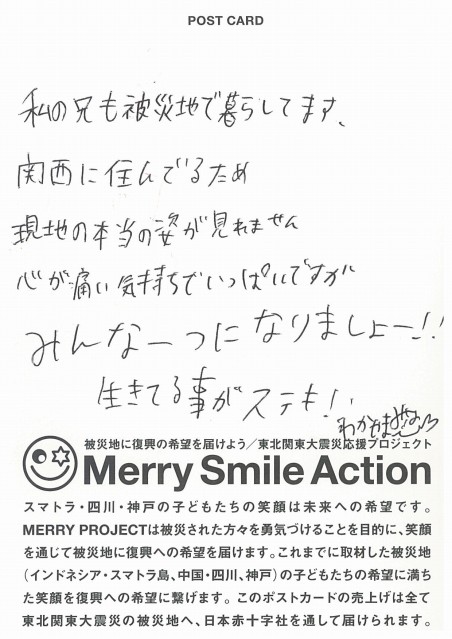 POST CARD
私の兄も被災地で暮らしてます、
関西に住んでるため
現地の本当の姿が見れません
心が痛い気持ちでいっぱいですが
みんな一つになりましょー!!
生きてる事がステキ!!
被災地に復興の希望を届けよう/東北関東大震災応援プロジェクト
Merry Smile Action
スマトラ・四川・神戸の子どもたちの笑顔は未来への希望です。
MERRY PROJECTは被災された方々を勇気づけることを目的に、笑顔
を通じて被災地に復興への希望を届けます。これまでに取材した被災地
(インドネシア・スマトラ島、中国・四川、神戸)の子どもたちの希望に満ち
た笑顔を復興への希望に繋げます。このポストカードの売上げは全て
東北関東大震災の被災地へ、日本赤十字社を通して届けられます。